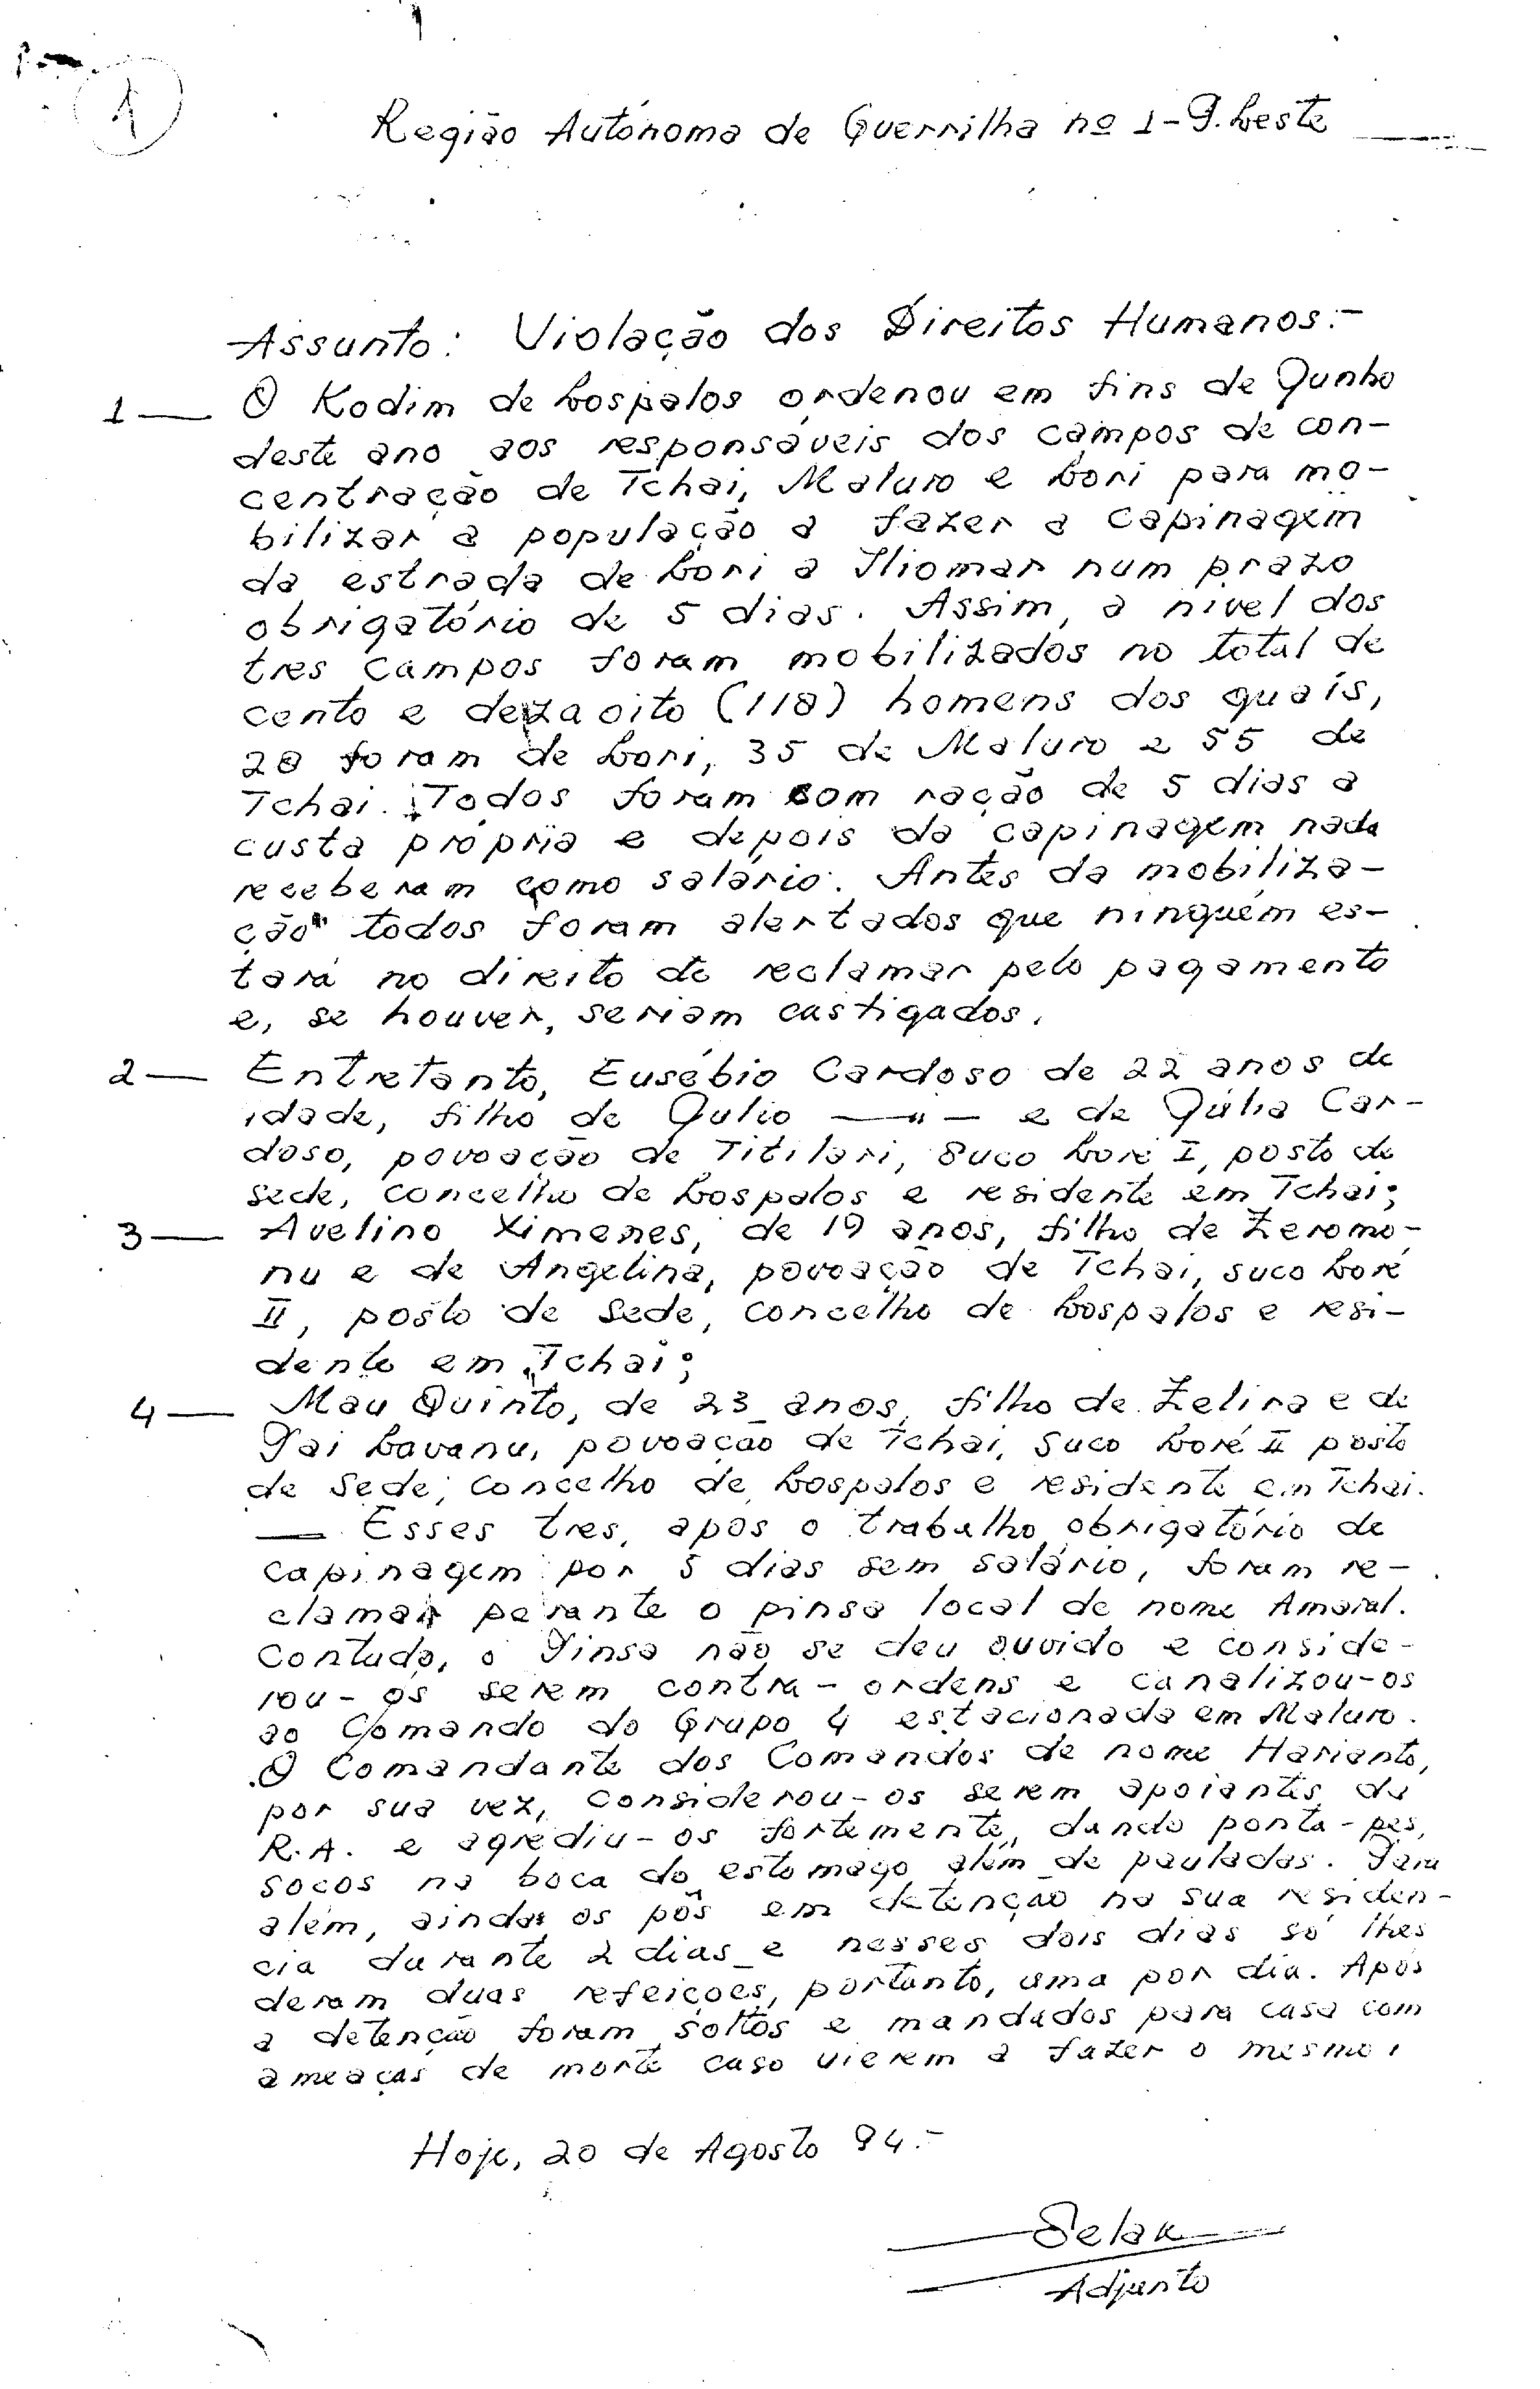 1
Região Autónoma de Guerrilha nº 1 - P. Leste
Assunto: Violação dos Direitos Humanos.-
1 — O Kodim de Lospalos ordenou em fins de Junho
deste ano aos responsáveis dos campos de con-
centração de Tchai, Maluro e Lori para mo-
bilizar a população a fazer a capinagem
da estrada de Lori a Iliomar num prazo
obrigatório de 5 dias. Assim, a nivel dos
tres campos foram mobilizados no total de
cento e dezaoito (118) homens dos quais,
28 foram de Lori, 35 de Maluro e 55 de
Tchai. Todos foram com ração de 5 dias a
custa própria e depois da capinagem nada
receberam como salário. Antes da mobiliza-
ção todos foram alertados que ninguém es-
tará no direito de reclamar pelo pagamento
e, se houver, seriam castigados.
2 — Entretanto, Eusébio Cardoso de 22 anos de
idade, filho de Julio —"— e de Júlia Car-
doso, povoação de Titilari, Suco Loré I, posto de
sede, concelho de Lospalos e residente em Tchai;
3 — Avelino Ximenes, de 19 anos, filho de Zeromo-
nu e de Angelina, povoação de Tchai, suco Loré
II, posto de Sede, concelho de Lospalos e resi-
dente em Tchai;
4 — Mau Quinto, de 23 anos, filho de Zelira e de
Pai Lavanu, povoação de Tchai, Suco Loré II posto
de Sede, concelho de Lospalos e residente em Tchai.
— Esses tres, apos o trabalho obrigatório de
capinagem por 5 dias sem salário, foram re-
clamar perante o pinsa local de nome Amaral.
Contudo, o Pinsa não se deu ouvido e conside-
rou-os serem contra-ordens e canalizou-os
ao Comando do Grupo 4 estacionada em Maluro.
O Comandante dos Comandos de nome Harianto,
por sua vez, considerou-os serem apoiantes da
R.A. e agrediu-os fortemente, dando ponta-pes,
socos na boca do estomago além de pauladas. Para
além, ainda os pôs em detenção na sua residen-
cia durante 2 dias e nesses dois dias só lhes
deram duas refeições, portanto, uma por dia. Após
a detenção foram soltos e mandados para casa com
ameaças de morte caso vierem a fazer o mesmo.
Hoje, 20 de Agosto 94.-
Selak
Adjunto